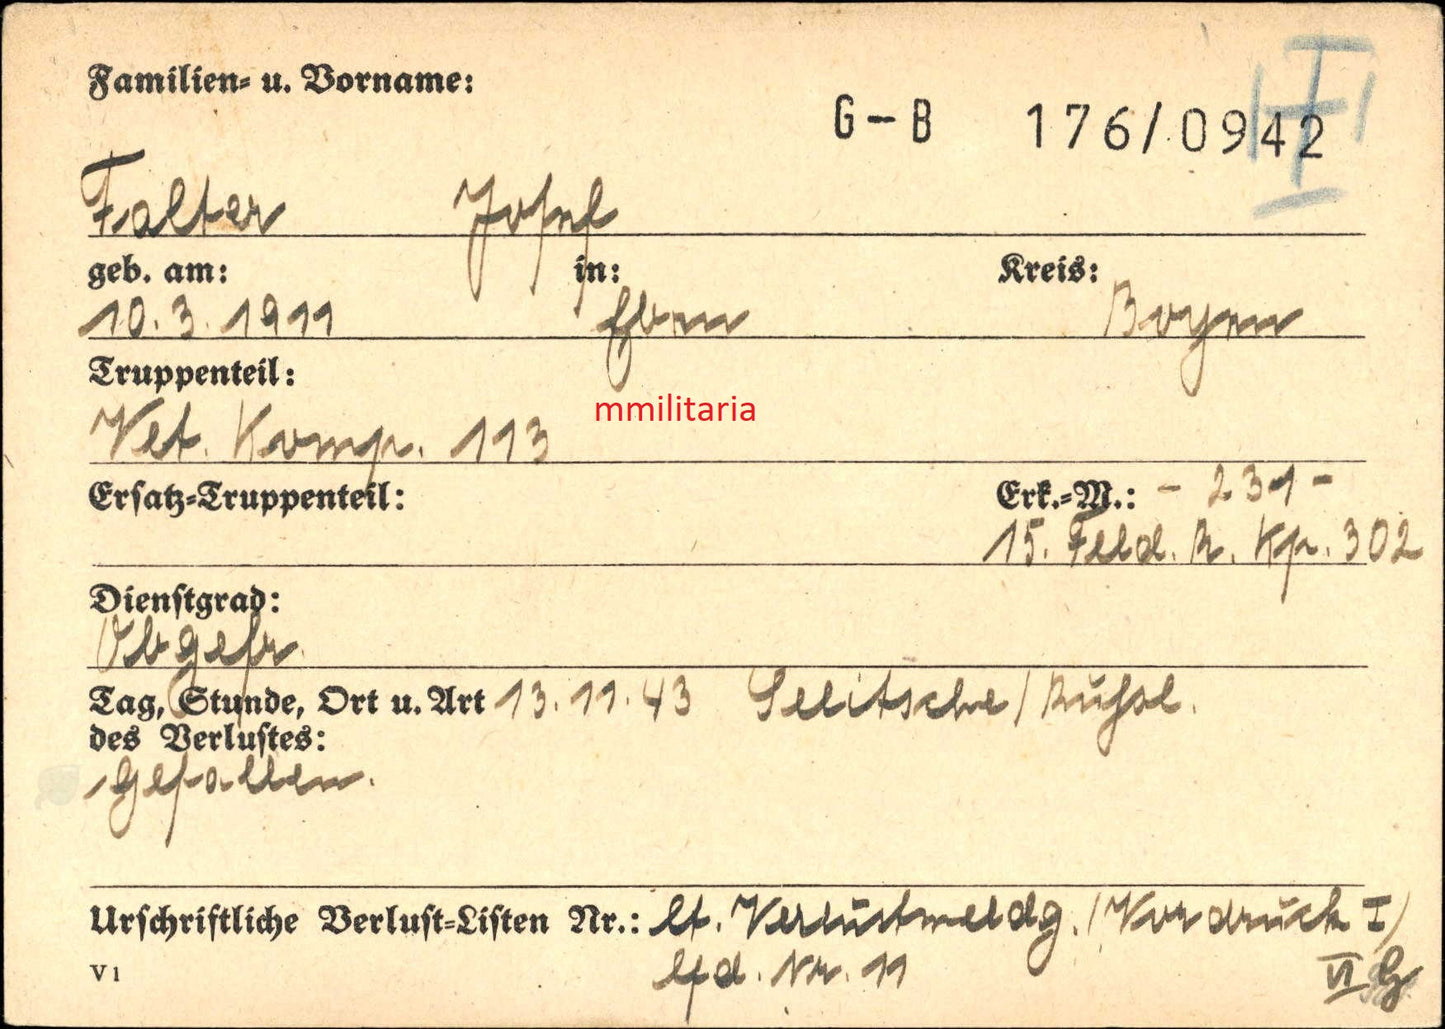 Familien- u. Vorname:
G-B 176/0942
I
Falter Josef
geb. am: in: Kreis:
10.3.1911 Ebern Bayern
Truppenteil:
Vet. Komp. 113
mmilitaria
Ersatz-Truppenteil: Erk.-M.: - 231 -
15. Feld. R. Kp. 302
Dienstgrad:
Obgefr.
Tag, Stunde, Ort u. Art 13.11.43 Selitsche / Rußl.
des Verlustes:
gefallen.
Urschriftliche Verlust-Listen Nr.: lt. Verlustmeldg. (Vordruck I)
V1 lfd. Nr. 11 VI